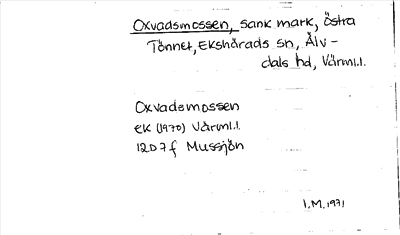 Oxvadsmossen, sank mark, östra
Tönnet, Ekshärads sn, Älv-
dals hd, Värml.l.
Oxvadsmossen
EK (1970) Värml.l.
12D7f Mussjön
I.M. 1971